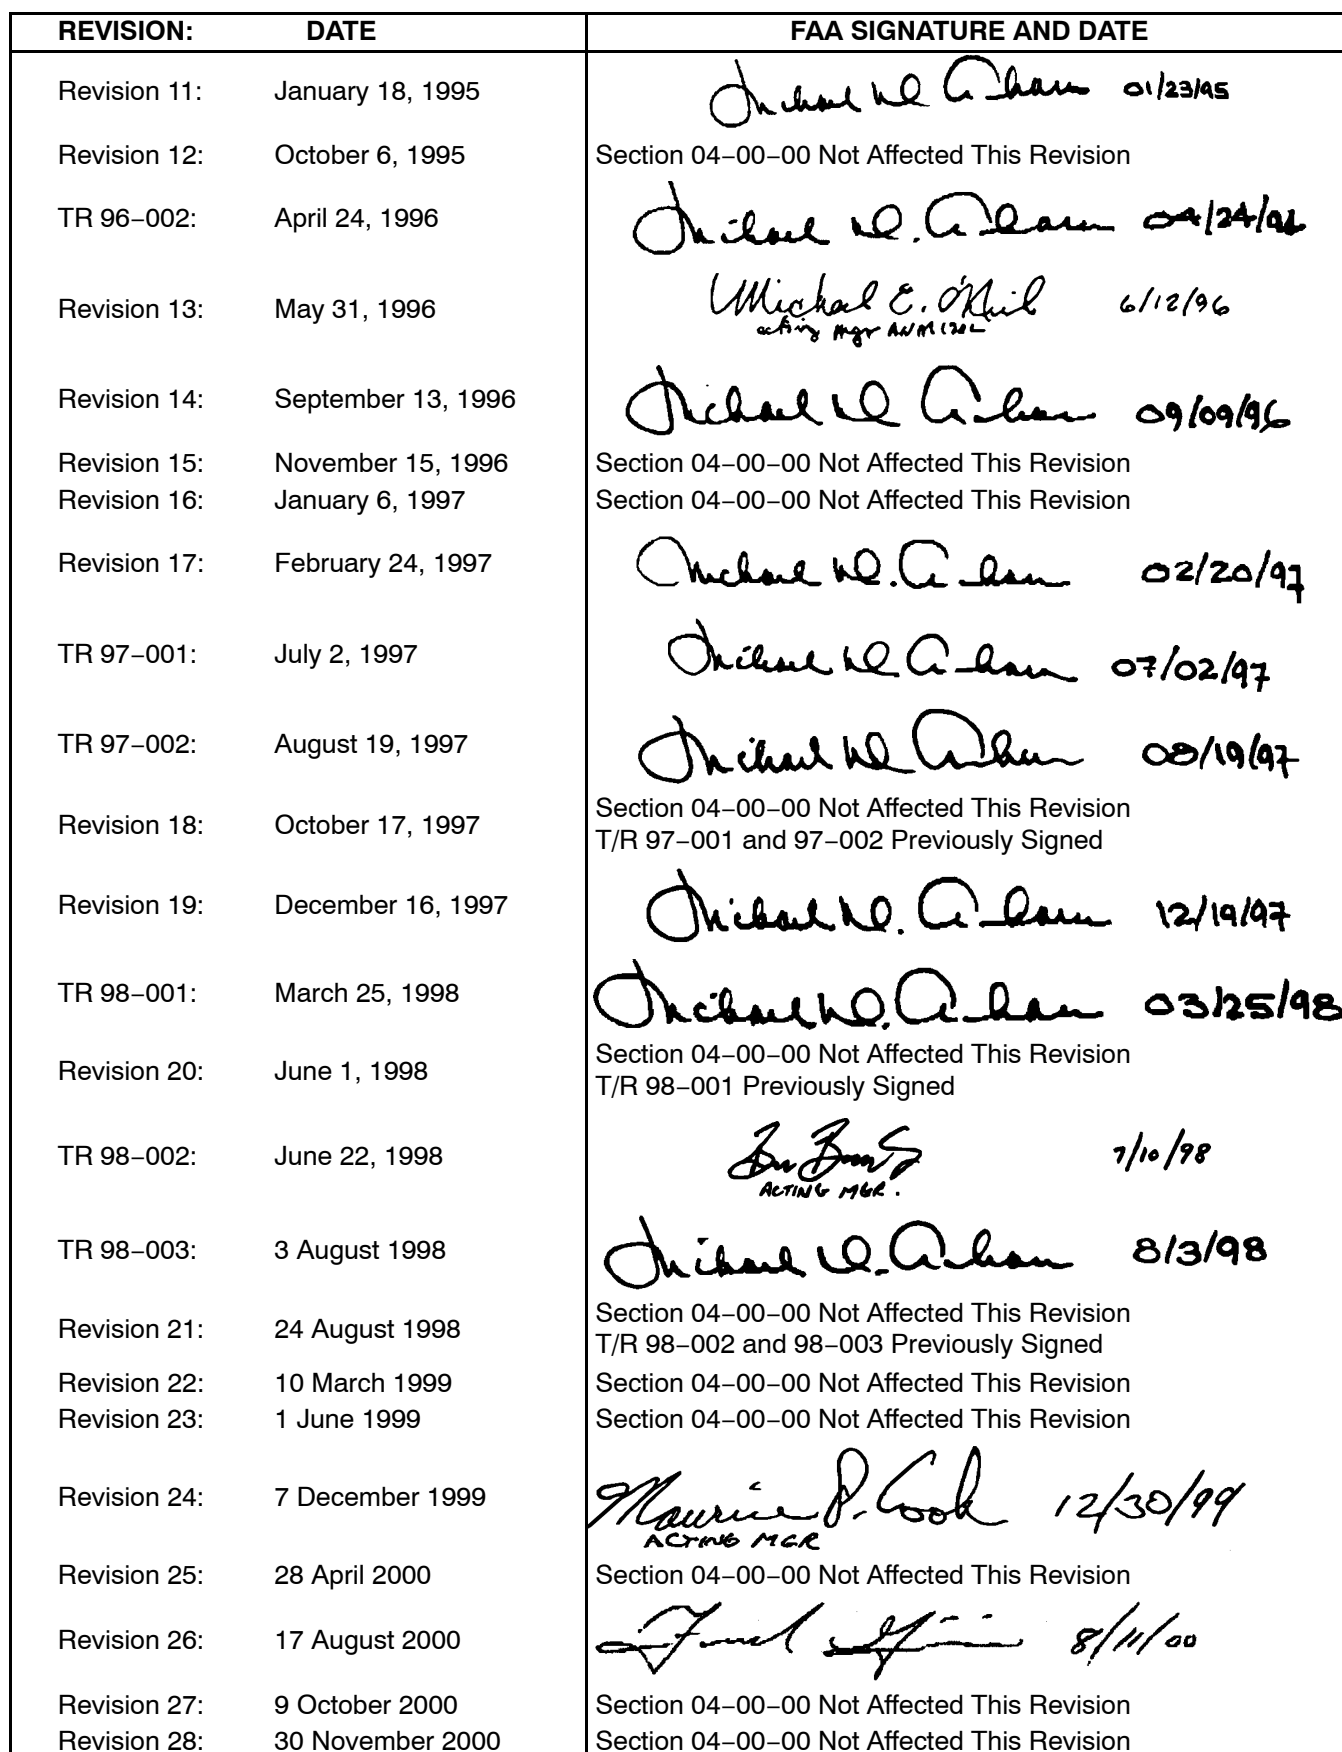 REVISION: DATE FAA SIGNATURE AND DATE
Revision 11: January 18, 1995 01/23/95
Revision 12: October 6, 1995 Section 04−00−00 Not Affected This Revision
TR 96−002: April 24, 1996 04/24/96
Revision 13: May 31, 1996 Michael E. O'Neil 6/12/96
acting Mgr ANM120L
Revision 14: September 13, 1996 Michael 09/09/96
Revision 15: November 15, 1996 Section 04−00−00 Not Affected This Revision
Revision 16: January 6, 1997 Section 04−00−00 Not Affected This Revision
Revision 17: February 24, 1997 Michael 02/20/97
TR 97−001: July 2, 1997 Michael 07/02/97
TR 97−002: August 19, 1997 Michael 08/19/97
Section 04−00−00 Not Affected This Revision
Revision 18: October 17, 1997 T/R 97−001 and 97−002 Previously Signed
Revision 19: December 16, 1997 Michael 12/19/97
TR 98−001: March 25, 1998 Michael 03/25/98
Section 04−00−00 Not Affected This Revision
Revision 20: June 1, 1998 T/R 98−001 Previously Signed
TR 98−002: June 22, 1998 7/10/98
ACTING MGR.
TR 98−003: 3 August 1998 Michael 8/3/98
Section 04−00−00 Not Affected This Revision
Revision 21: 24 August 1998 T/R 98−002 and 98−003 Previously Signed
Revision 22: 10 March 1999 Section 04−00−00 Not Affected This Revision
Revision 23: 1 June 1999 Section 04−00−00 Not Affected This Revision
Revision 24: 7 December 1999 Maurice P. Cook 12/30/99
ACTING MGR
Revision 25: 28 April 2000 Section 04−00−00 Not Affected This Revision
Revision 26: 17 August 2000 8/11/00
Revision 27: 9 October 2000 Section 04−00−00 Not Affected This Revision
Revision 28: 30 November 2000 Section 04−00−00 Not Affected This Revision